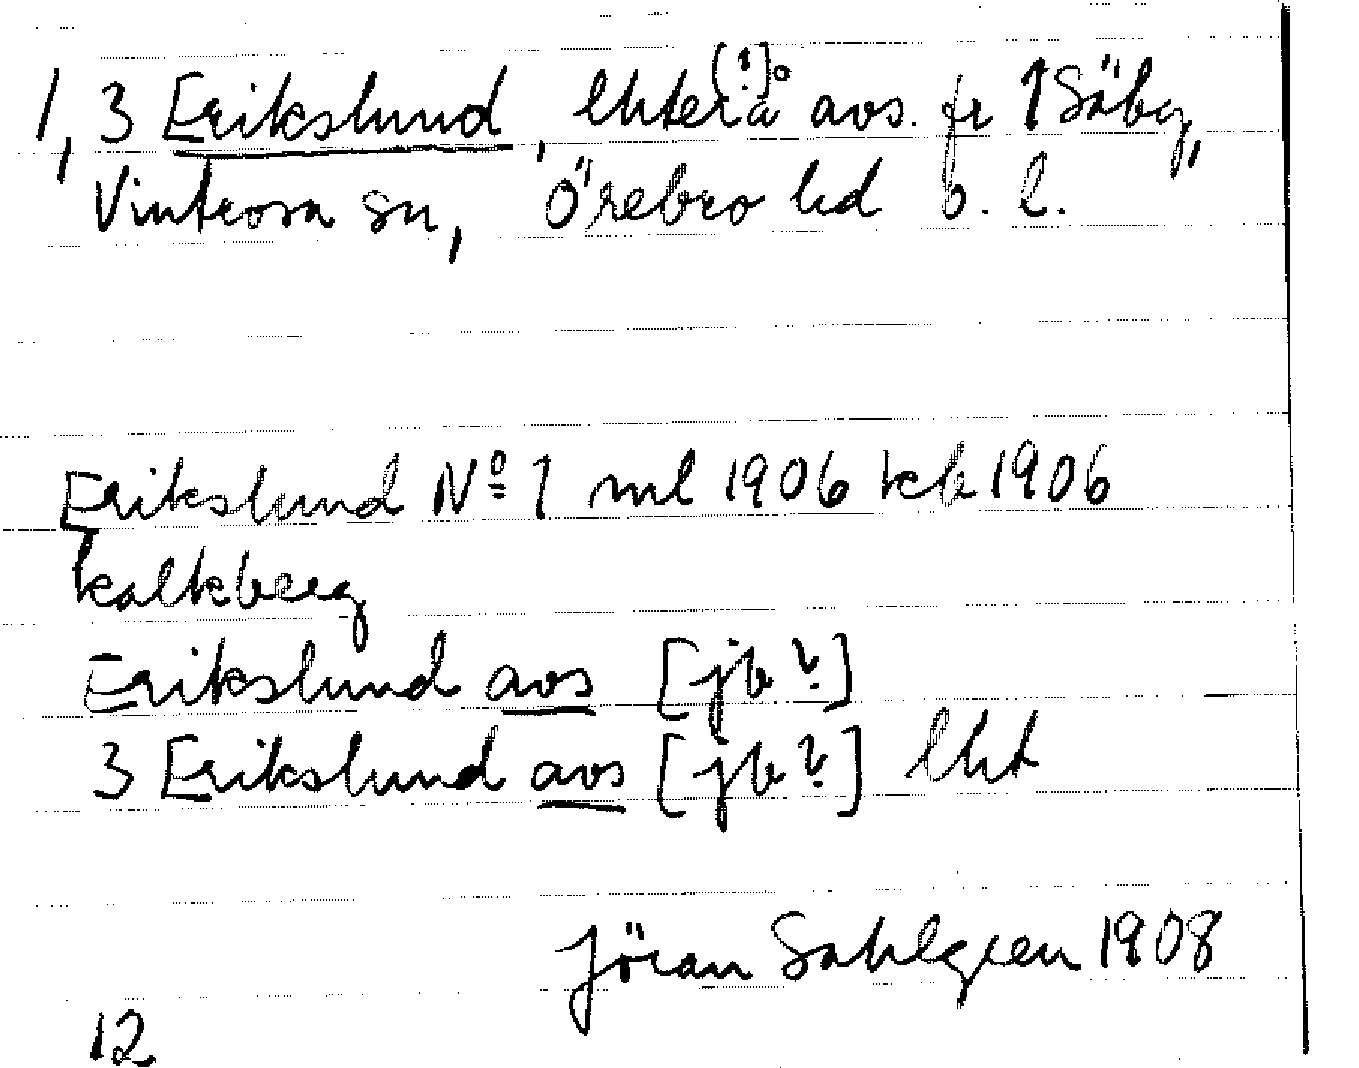 1, 3 Erikslund, lhter[!]å avs. fr ↑Säby,
Vintrosa sn, Örebro hd Ö. l.
Erikslund Nº 1 ml 1906 kck 1906
kalkberg
Erikslund avs [jb?]
3 Erikslund avs [jb?] lht
Jöran Sahlgren 1908
12